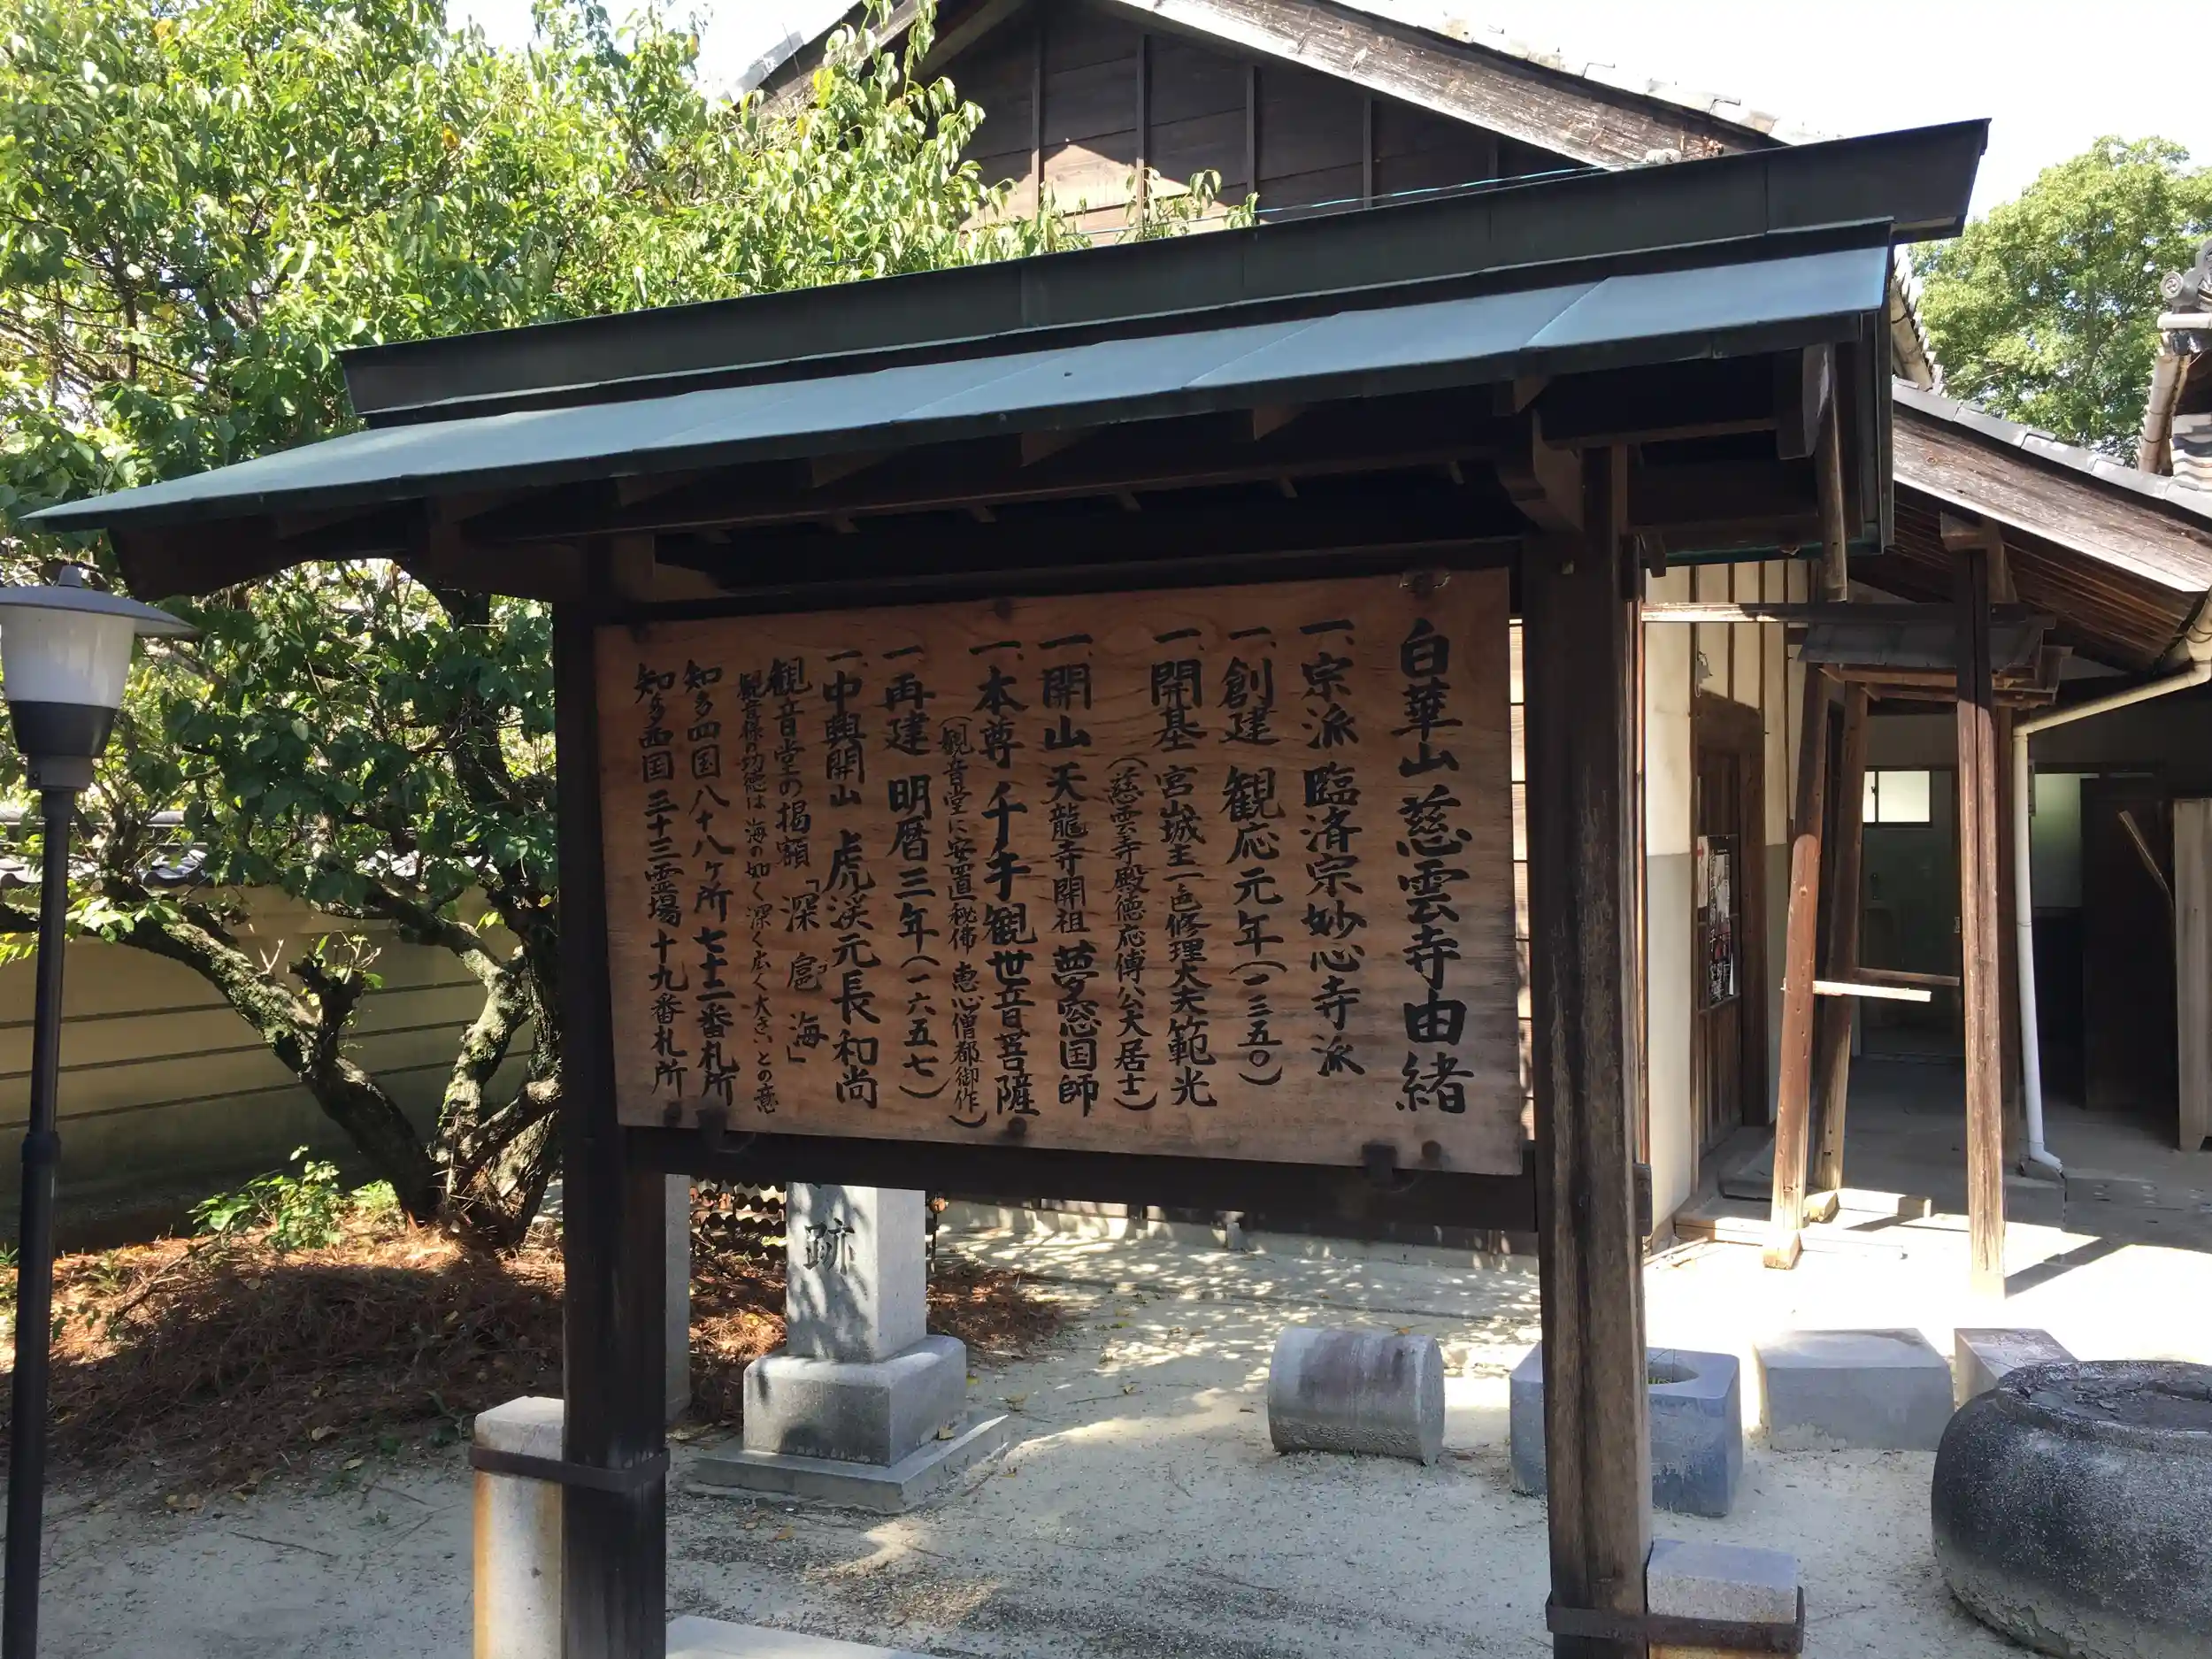 白華山慈雲寺由緒
一、宗派 臨済宗妙心寺派
一、創建 観応元年(一三五〇)
一、開基 宮山城主一色修理大夫範光
(慈雲寺殿徳応傅公大居士)
一、開山 天龍寺開祖 夢窓国師
一、本尊 千手観世音菩薩
(観音堂に安置 秘佛 恵心僧都御作)
一、再建 明暦三年(一六五七)
一、中興開山 虎渓元長和尚
観音堂の掲額「深扈海」
観音様の功徳は 海の如く 深く 広く 大きい との意
知多四国八十八ヶ所 七十二番札所
知多西国 三十三霊場 十九番札所
跡